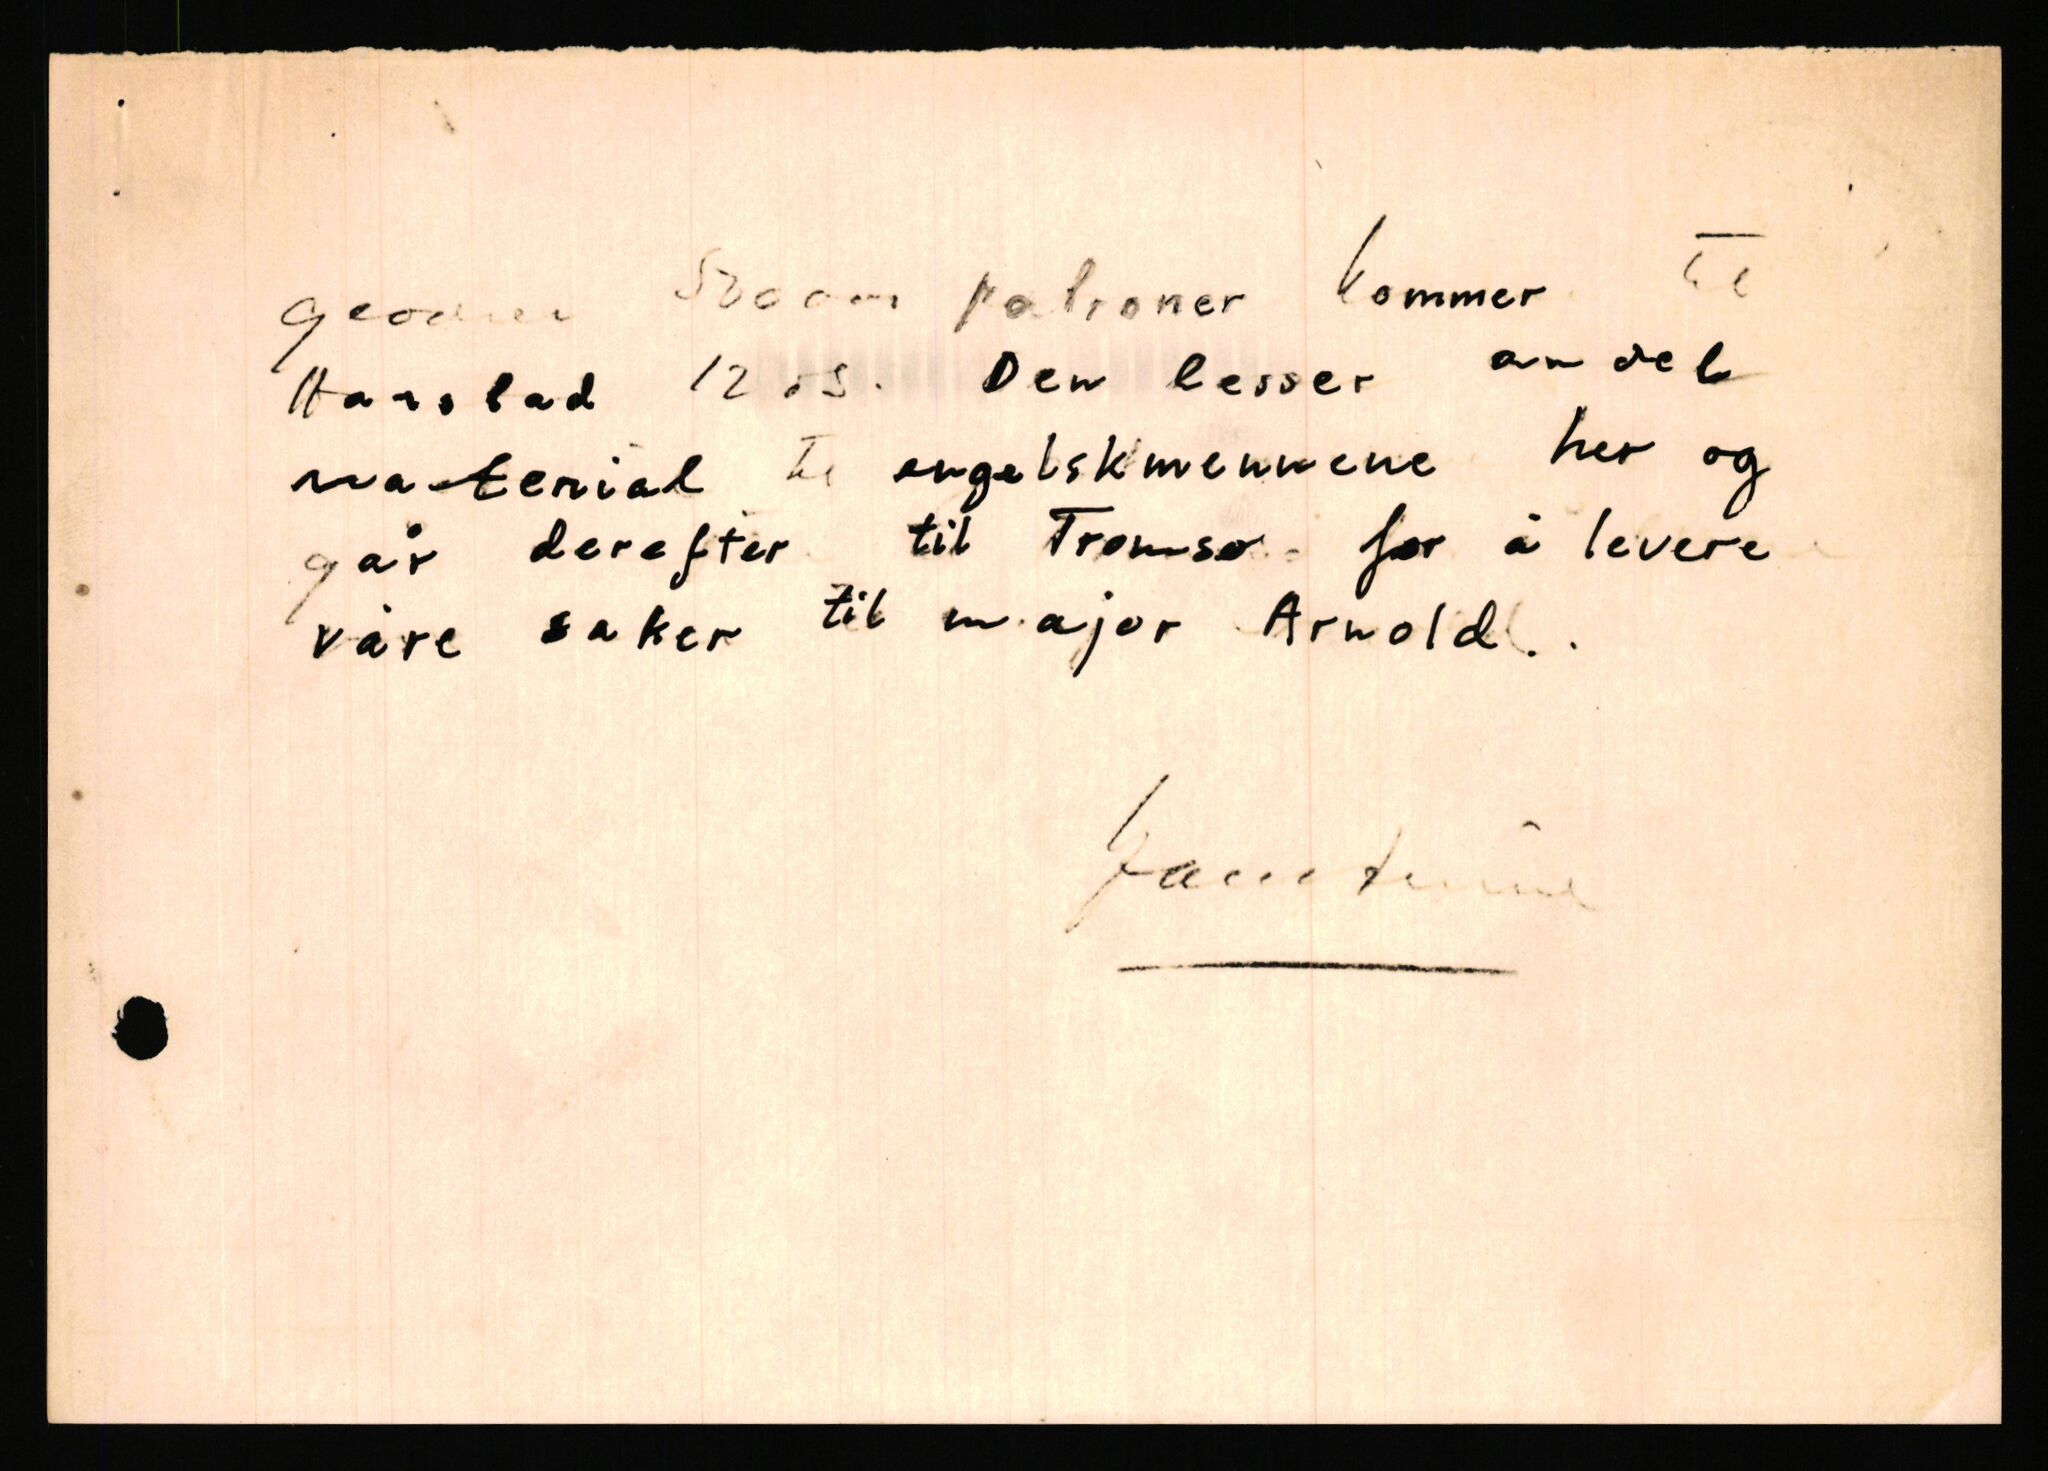 patroner kommer til
Harstad 12 ds. Den losser en del
material til engelskmennene her og
går derefter til Tromsø for å levere
våre saker til major Arnold.